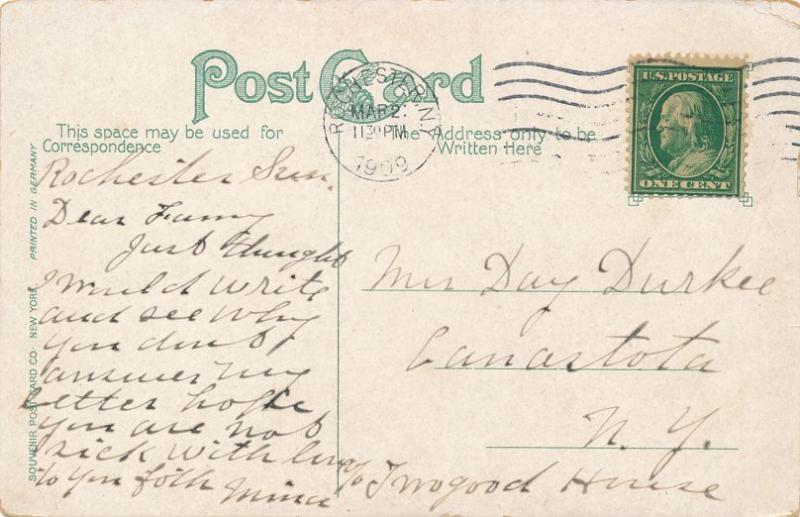 Post Card
This space may be used for
Correspondence
The Address only to be
Written Here
ROCHESTER, N.Y.
MAR 2
1130 PM
1909
U.S. POSTAGE
ONE CENT
PRINTED IN GERMANY
SOUVENIR POST CARD CO. NEW YORK
Rochester Sun.
Dear Fanny
Just thought
I would write
and see why
you dont
answer my
letter hope
you are not
sick with love
to you both Mina
Mrs Day Durkee
Canastota
N. Y.
c/o Twogood House